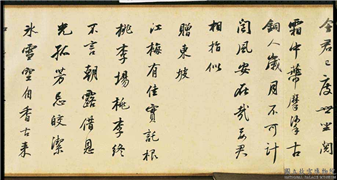 今君已度世坐閱
霜中蔕摩挲古
銅人歲月不可計
閬風安在哉要君
相指似
贈東坡
江梅有佳實託根
桃李場桃李終
不言朝露借恩
光孤芳忌皎潔
冰雪空自香古來
國立故宮博物院
NATIONAL PALACE MUSEUM